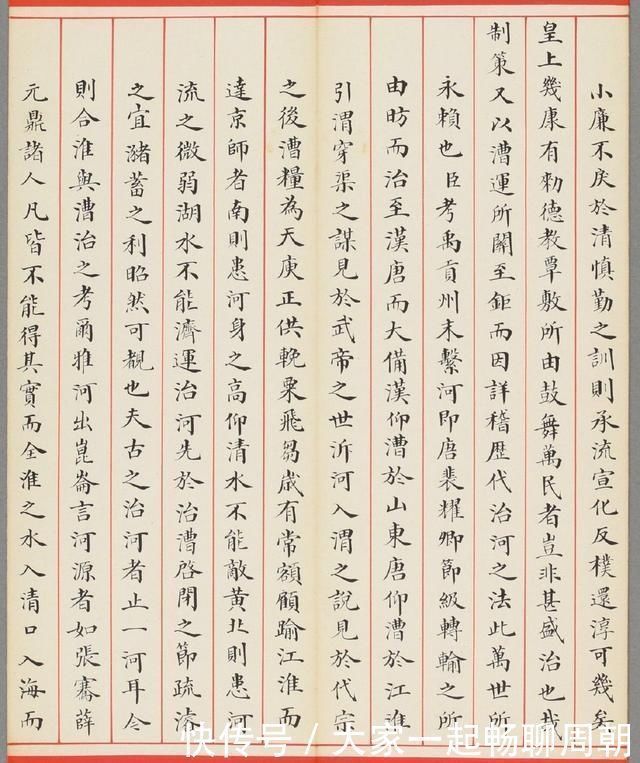 小廉不戾於清慎勤之訓則承流宣化反樸還淳可幾矣
皇上幾康有勅德教覃敷所由鼓舞萬民者豈非甚盛治也哉
制策又以漕運所關至鉅而因詳稽歷代治河之法此萬世所
永賴也臣考禹貢州末繫河即唐裴耀卿節級轉輸之所
由昉而治至漢唐而大備漢仰漕於山東唐仰漕於江淮
引渭穿渠之謀見於武帝之世泝河入渭之說見於代宗
之後漕糧為天庾正供輓粟飛芻歲有常額顧踰江淮而
達京師者南則患河身之高仰清水不能敵黃北則患河
流之微弱湖水不能濟運治河先於治漕啓閉之節疏濬
之宜瀦蓄之利昭然可覩也夫古之治河者止一河耳今
則合淮與漕治之考爾雅河出崑崙言河源者如張騫薛
元鼎諸人凡皆不能得其實而全淮之水入清口入海而
快传号/大家一起畅聊周朝